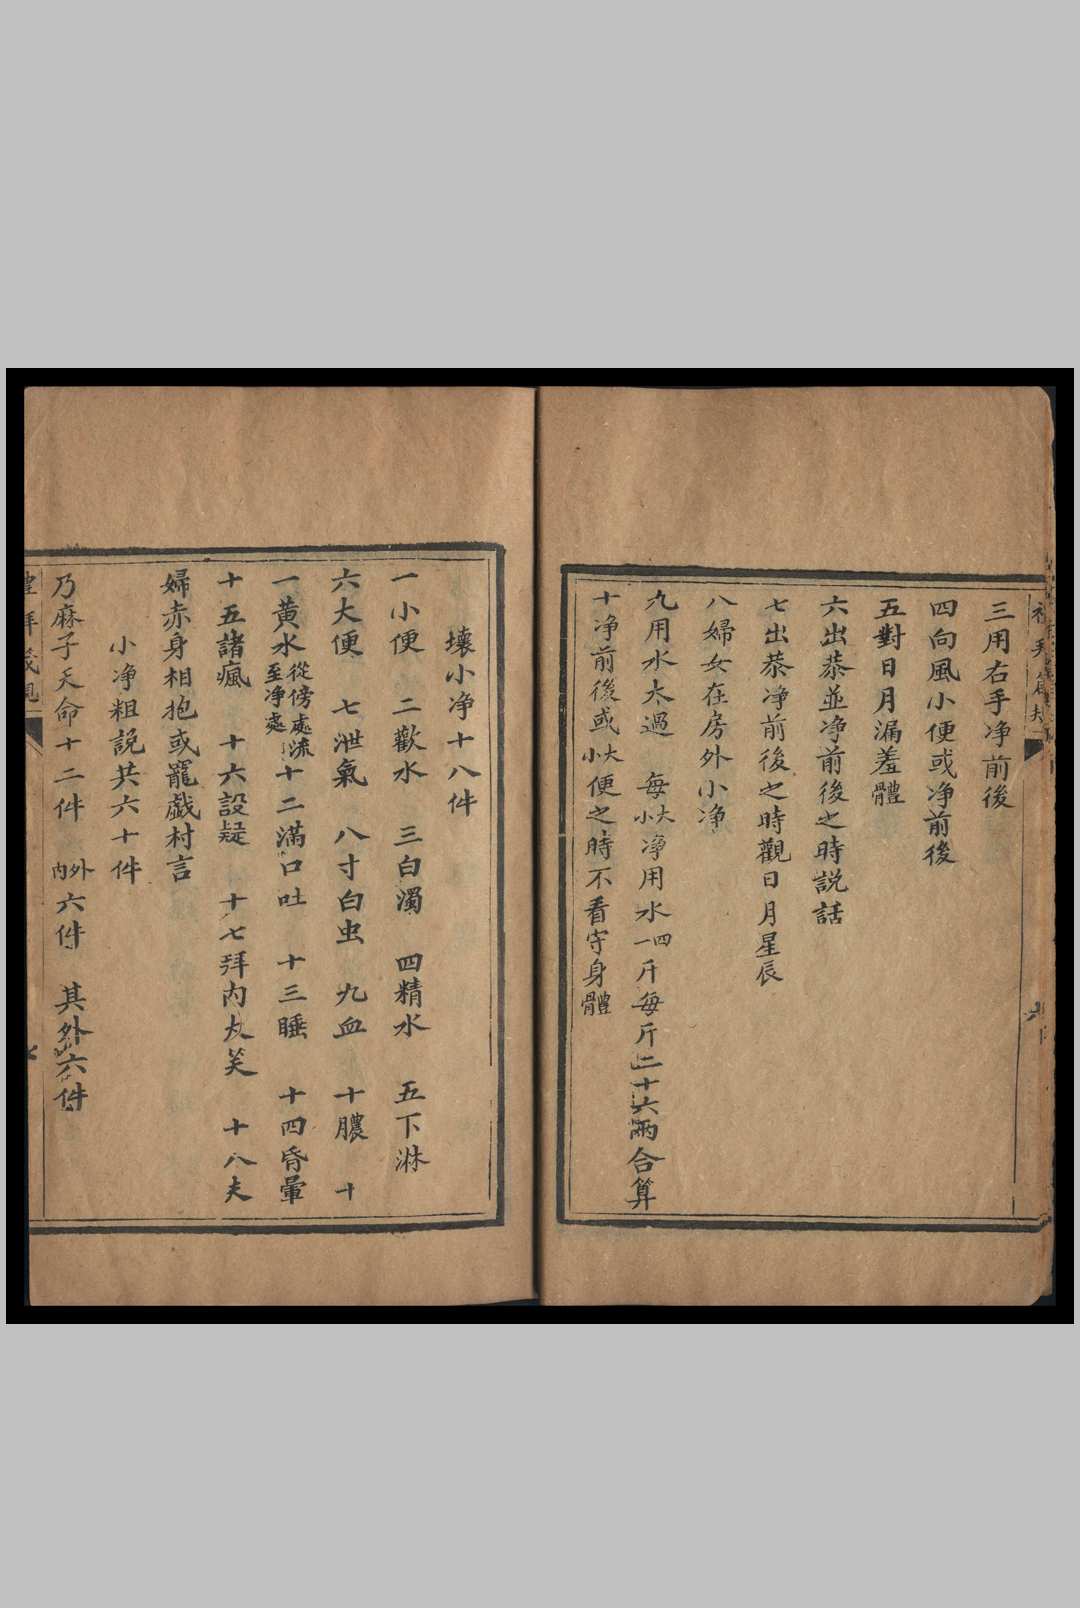 三用右手净前後
四向風小便或净前後
五對日月漏羞體
六出恭並净前後之時説話
七出恭净前後之時觀日月星辰
八婦女在房外小净
九用水太過 每大小净用水四一斤每斤二十六兩合算
十净前後或大小便之時不看守身體
壞小净十八件
一小便 二歡水 三白濁 四精水 五下淋
六大便 七泄氣 八寸白虫 九血 十膿 十
一黄水從傍處流至净處 十二滿口吐 十三睡 十四昏暈
十五諸瘋 十六設疑 十七拜内大笑 十八夫
婦赤身相抱或寵戯村言
小净粗説共六十件
乃麻子天命十二件 外内六件 其外六件